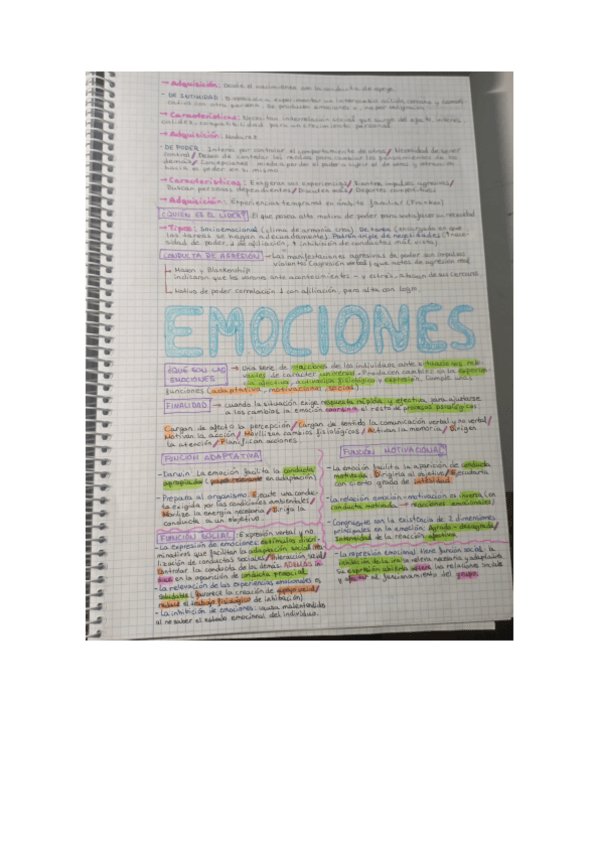 → Adquisición: Desde el nacimiento con la conducta de apego.
- DE INTIMIDAD: Disposición a experimentar un intercambio cálido, cercano y comuni-
cativo con otra persona. Se producen emociones +, no por obligación.
→ Características: Necesitan interrelación social que surge del afecto, interés,
calidez, compatibilidad para un crecimiento personal.
→ Adquisición: Madurez
- DE PODER: Interés por controlar el comportamiento de otros / Necesidad de tener
control / Deseo de controlar los medios para cambiar los pensamientos de los
demás /
→ Características: Exageran sus experiencias / impulsos agresivos /
Buscan personas dependientes / Deportes competitivos
→ Adquisición: Experiencias tempranas en ámbito familiar (Padres)
¿QUIÉN ES EL LÍDER? El que posea alto motivo de poder para satisfacer su necesidad
→ Tipos: Socioemocional (clima de armonía crea). De tarea (encargado en que
las tareas se hagan adecuadamente). Patrón triple de necesidades (↑ nece-
sidad de poder, ↓ de afiliación, ↑ inhibición de conductas mot. vista)
CONDUCTA DE AGRESIÓN → Las manifestaciones agresivas de poder son impulsos
violentos (agresión verbal) y que antes de agresión mot.
→ Mason y Blankenship
indicaron que los varones ante acontecimientos - y estrés, abusan de sus cercanos
→ Motivo de poder correlación ↓ con afiliación, pero alta con logro.
EMOCIONES
¿QUÉ SON LAS EMOCIONES? → Una serie de reacciones de los individuos ante situaciones rele-
vantes de carácter universal. Producen cambios en la experien-
cia afectiva, activación fisiológica y expresión. Cumple unas
funciones (adaptativa, motivacional, social)
FINALIDAD → cuando la situación exige respuesta rápida y efectiva, para ajustarse
a los cambios, la emoción coordina el resto de procesos psicológicos.
Cargan de afecto la percepción / Cargan de sentido la comunicación verbal y no verbal /
Motivan la acción / Movilizan cambios fisiológicos / Activan la memoria / Dirigen
la atención / Planifican acciones.
FUNCIÓN ADAPTATIVA
- Darwin: La emoción facilita la conducta
apropiada (papel relevante en adaptación)
- Prepara al organismo: Ejecute una conduc-
ta exigida por las condiciones ambientales /
Moviliza la energía necesaria / Dirija la
conducta a un objetivo.
FUNCIÓN SOCIAL Expresión verbal y no
- La expresión de emociones: estímulos discri-
minativos que facilitan la adaptación social, rea-
lización de conductas sociales / Interacción social /
Controlar la conducta de los demás. ADEMÁS in-
fluye en la aparición de conducta prosocial.
- La revelación de las experiencias emocionales es
saludable (favorece la creación de apoyo social /
reduce el trabajo fisiológico de inhibición).
- La inhibición de emociones: causa malentendido
al no saber el estado emocional del individuo.
FUNCIÓN MOTIVACIONAL
- La emoción facilita la aparición de conducta
motivada. Dirigirla al objetivo / Ejecutarla
con cierto grado de intensidad.
- La relación emoción-motivación es íntima (en
conducta motivada → reacciones emocionales)
- Congruente con la existencia de 2 dimensiones
principales en la emoción: Agrado - desagrado /
Intensidad de la reacción afectiva.
- La expresión emocional tiene función social: la
inhibición de la ira se vuelve necesaria y adaptativa,
su expresión abierta altera las relaciones sociales
y afectar al funcionamiento del grupo.